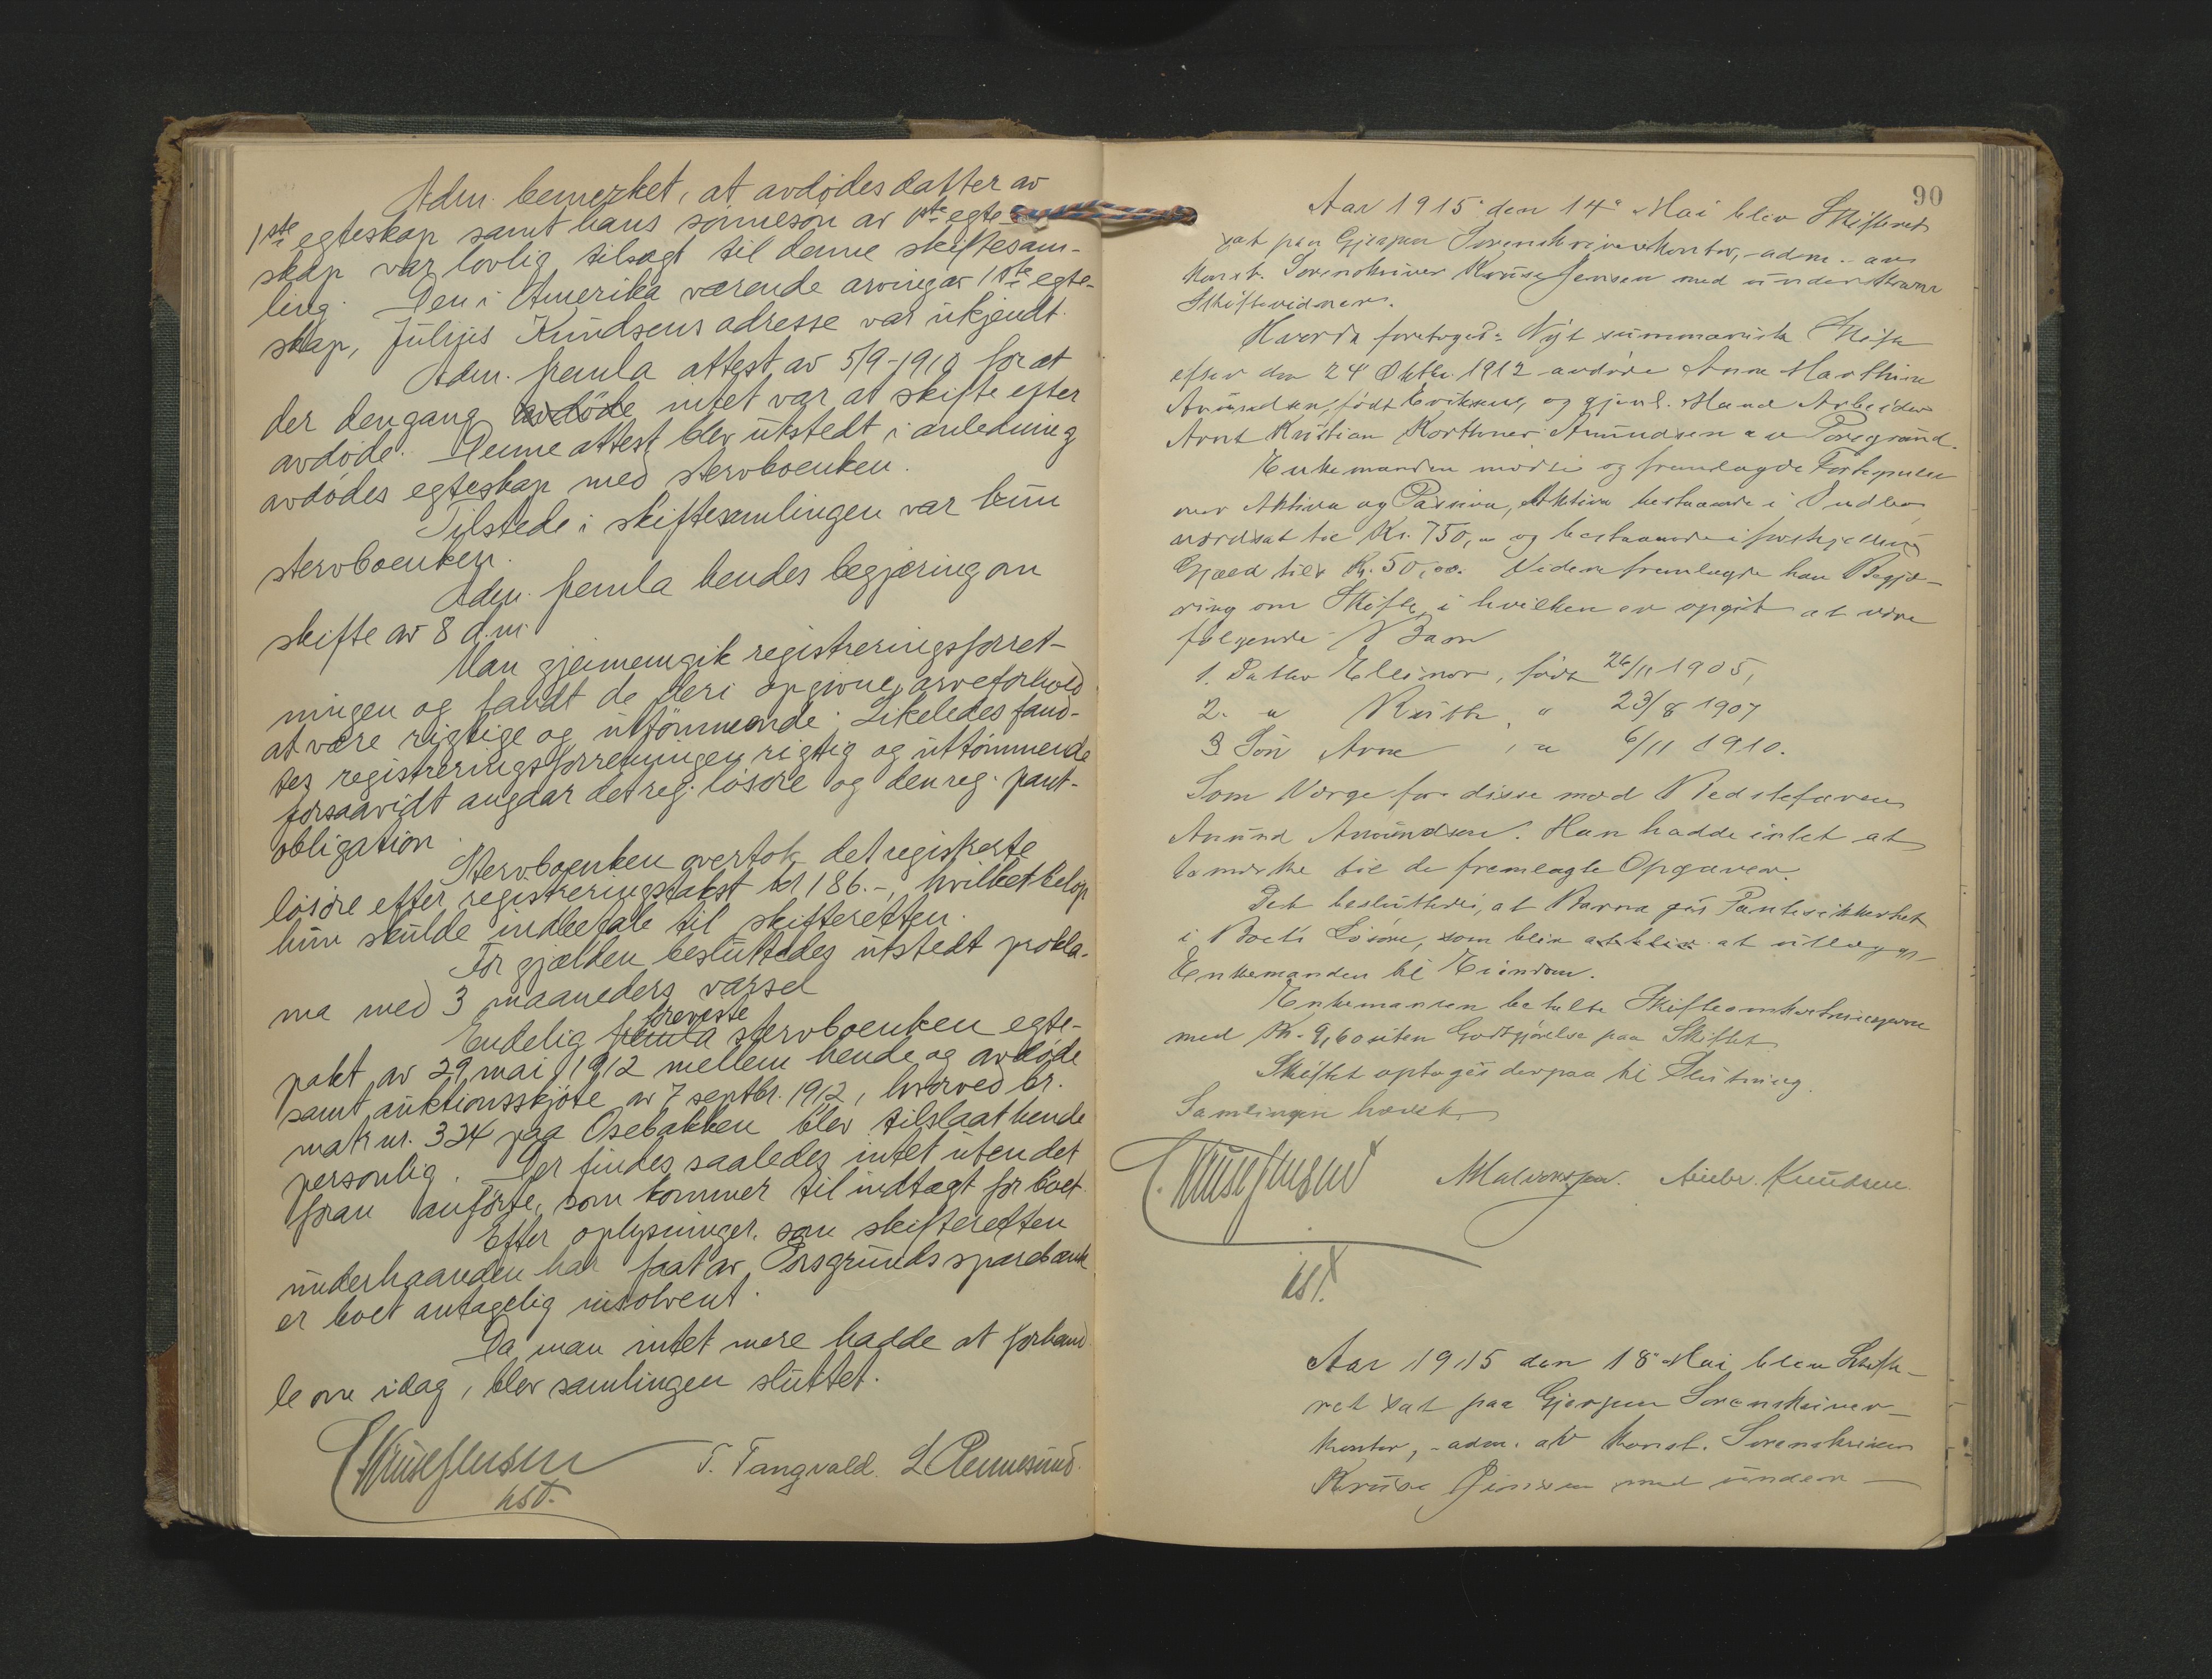 Adm. bemerket, at avdødes datter av
1ste egteskap samt hans sønnesøn av 1ste egte-
skap var lovlig tilsagt til denne skiftesam-
ling. Den i Amerika værende arving av 1ste egte-
skap, Julius Knudsens adresse var ukjendt.
Adm. femla attest av 5/9-1910 for at
der dengang avdøde intet var at skifte efter
avdøde. Denne attest blev utstedt i anledning
avdødes egteskap med stervboenken.
Tilstede i skiftesamlingen var kun
stervboenken.
Adm. femla hendes begjæring om
skifte av 8 d.m.
Man gjennemgik registreringsforret-
ningen og fandt de deri opgivne arveforhold
at være rigtige og uttømmende. Likeledes fand-
tes registreringsforretningen rigtig og uttømmende
forsaavidt angaar det reg. løsøre og den reg. pant-
obligation.
Stervboenken overtok det registrerte
løsøre efter registreringstakst kr 186.-, hvilket beløp
hun skulde indbetale til skifteretten.
For gjælden besluttedes utstedt prokla-
ma med 3 maaneders varsel
foreviste
Endelig femla stervboenken egte-
pakt av 29 mai 1912 mellem hende og avdøde
samt auktionsskjøte av 7 septbr. 1912, hvorved br.
matr. nr. 324 paa Osebakken blev tilslaat hende
personlig. Der findes saaledes intet uten det
foran anførte, som kommer til indtægt for boet.
Efter oplysninger, som skifteretten
underhaanden har faat av Porsgrunds sparebank
er boet antagelig insolvent.
Da man intet mere hadde at forhand
le om idag, blev samlingen sluttet.
C Kruse Jensen T. Tangvald. L Rennesund.
kst.
90
Aar 1915 den 14de Mai blev Skifteret
sat paa Gjerpen Sorenskriverkontor, - adm. av
Konst. Sorenskriver Kruse Jensen med underskrevne
Skiftevidner.
Hvorda foretoges: Nyt summarisk Skifte
efter den 24 Oktbr. 1912 avdøde Anne Marthine
Amundsen, født Eriksen, og gjenl. Mand Arbeider
Arnt Kristian Amundsen av Porsgrund.
Enkemanden mødte og fremlagde Fortegnelse
over Aktiva og Passiva, Aktiva bestaaende i Indbo
værdsat til Kr. 750,- og bestaaende i forskjellig
Gjæld tils. Kr. 50,00. Videre fremlagde han Begjæ-
ring om Skifte, i hvilken er opgit at være
følgende Barn
1. Datter Eleonor, født 26/11 1905,
2. " Ruth, " 23/8 1907
3 Søn Arne, " 6/11 1910.
Som Værge for disse mød Bedstefaren
Amund Amundsen. Han hadde intet at
bemærke til de fremlagte Opgaver.
Det besluttedes, at Barna gis Pantesikkerhet
i Boets Løsøre, som blir at utlægges
Enkemanden til Eiendom.
Enkemanden betalte Skifteomkostningerne
med Kr. 9,60 uten Godtgjørelse paa Skiftet
Skiftet optoges derpaa til Slutning.
Samlingen hævet
C. Kruse Jensen Ambr. Knudsen.
kst.
Aar 1915 den 18de Mai blev Skifte-
ret sat paa Gjerpen Sorenskriver-
kontor, - adm. av Konst. Sorenskriver
Kruse Jensen med under-